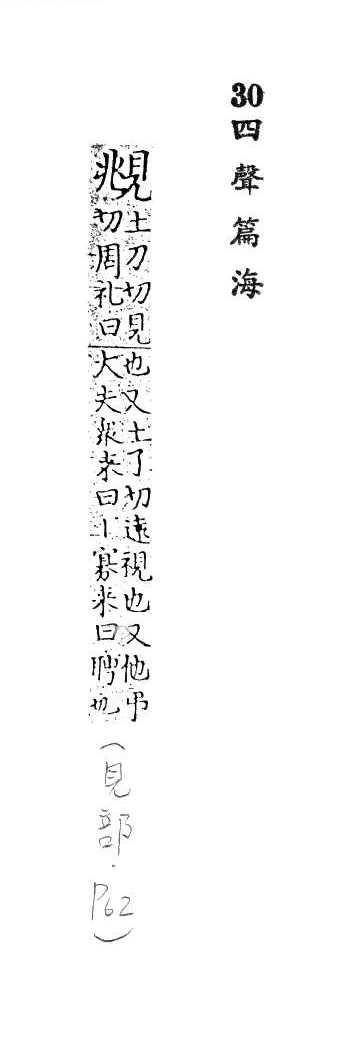 30 四聲篇海
覜
土刀切見也又土了切遠視也又他弔
切周礼曰大夫衆来曰丨寡来曰聘也
(見部.P62)